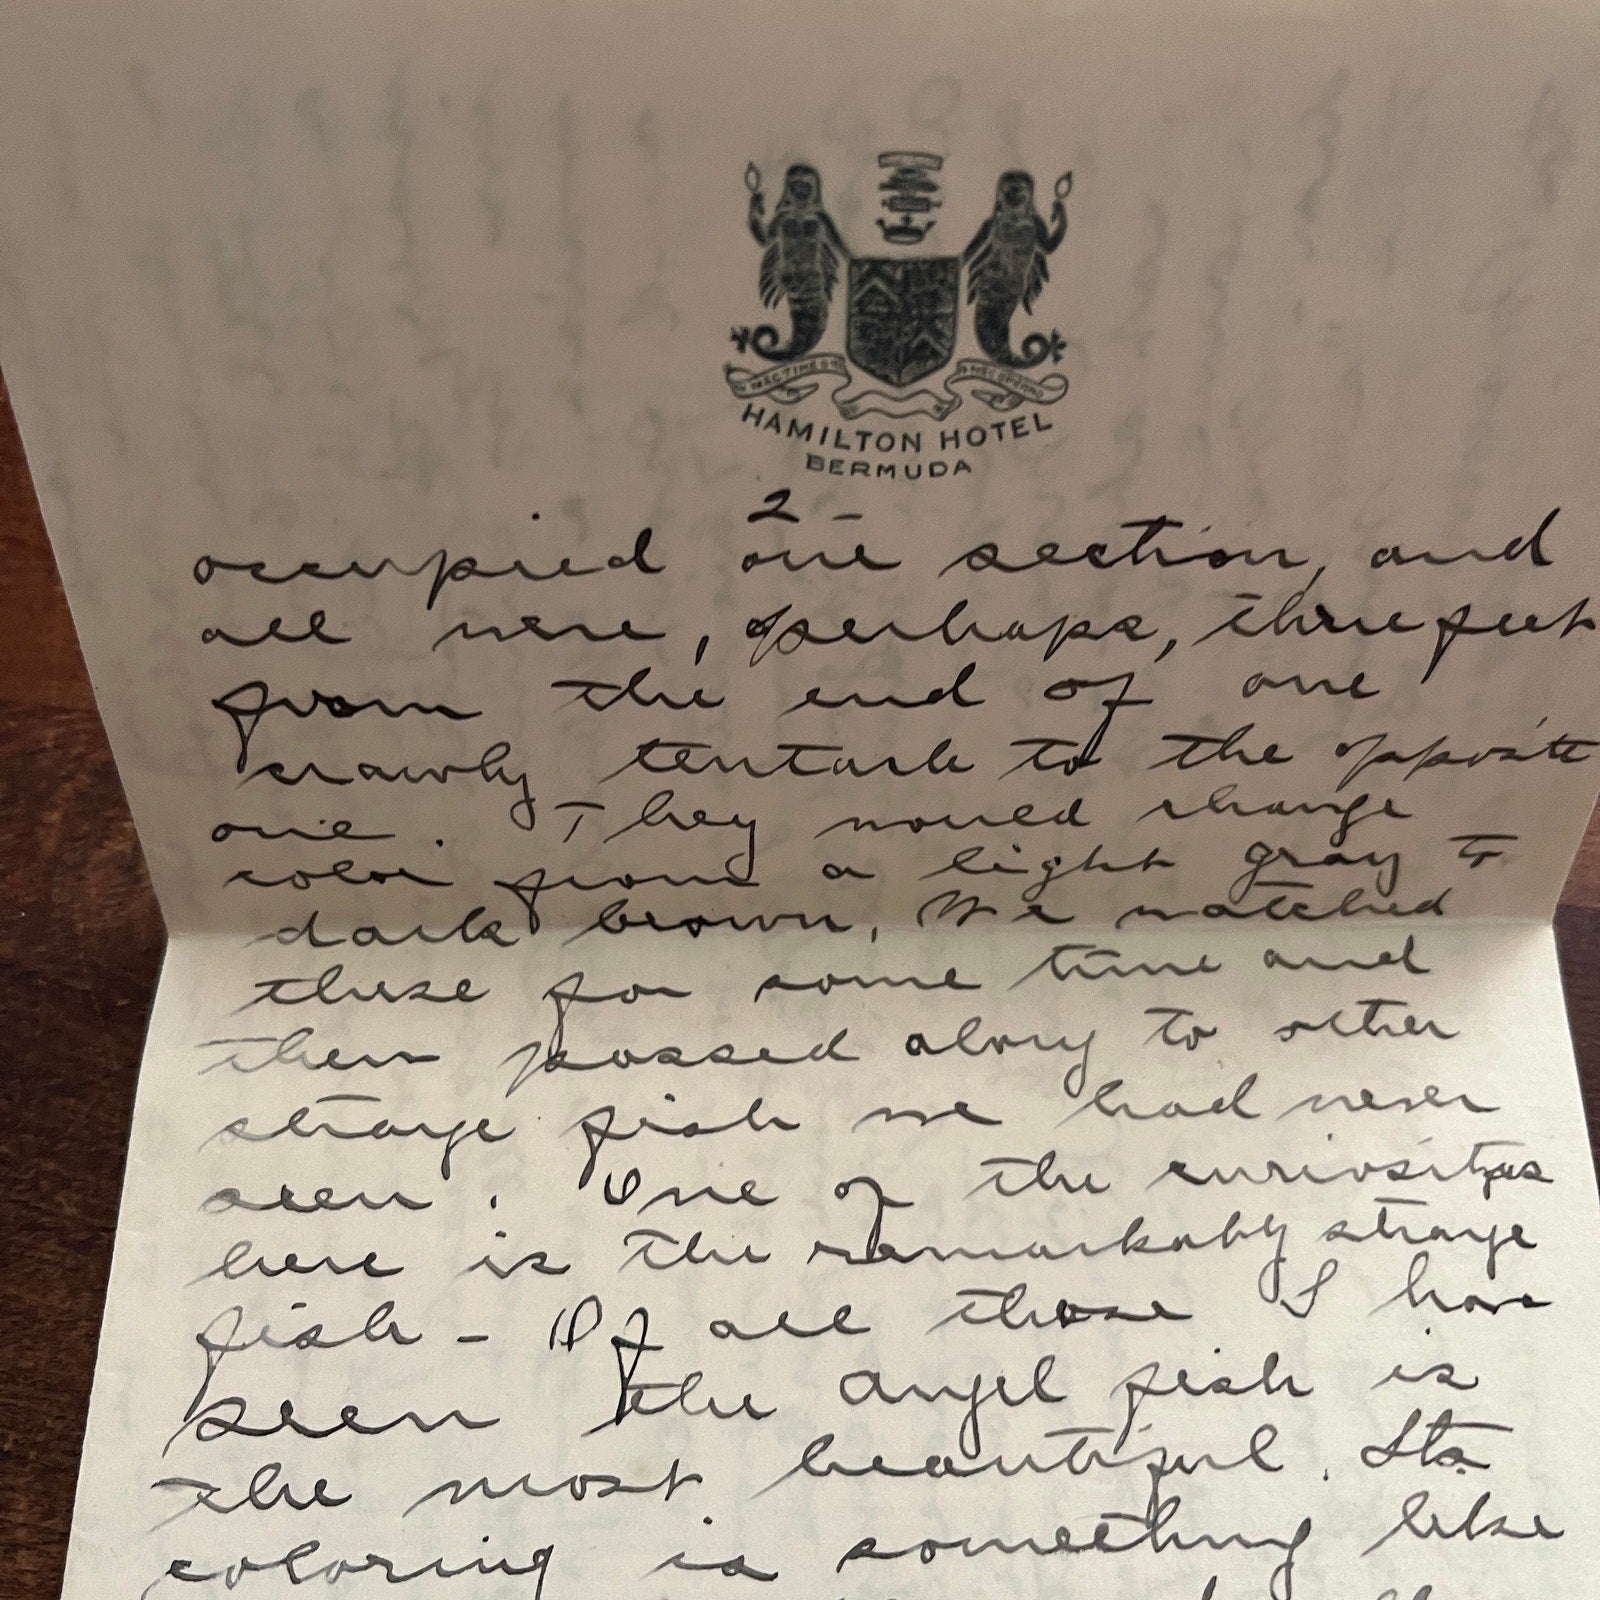 HAMILTON HOTEL
BERMUDA
2
occupied one section, and
all were, perhaps, three feet
from the end of one
crawly tentacle to the opposite
one. They would change
color from a light gray to
dark brown, We watched
these for some time and
then passed along to other
strange fish we had never
seen. One of the curiosities
here is the remarkably strange
fish - Of all those I have
seen the angel fish is
the most beautiful. Its
coloring is something like